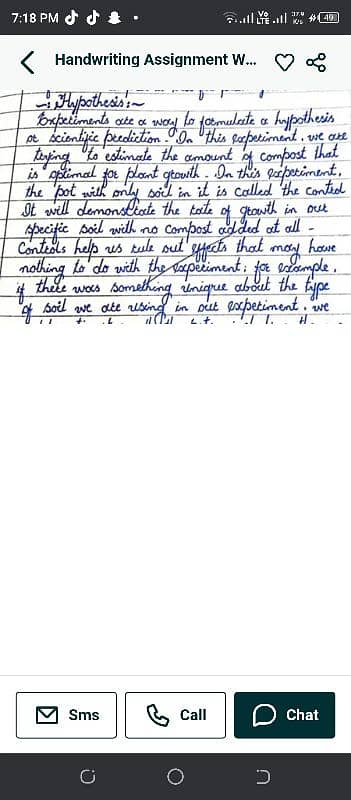 7:18 PM
Vo
LTE
37.9
K/s
49
Handwriting Assignment W...
-: Hypothesis:~
Experiments are a way to formulate a hypothesis
or scientific prediction. In this experiment, we are
trying to estimate the amount of compost that
is optimal for plant growth. In this experiment,
the pot with only soil in it is called the control
It will demonstrate the rate of growth in our
specific soil with no compost added at all -
Controls help us rule out effects that may have
nothing to do with the experiment; for example,
if there was something unique about the type
of soil we are using in our experiment, we
Sms
Call
Chat